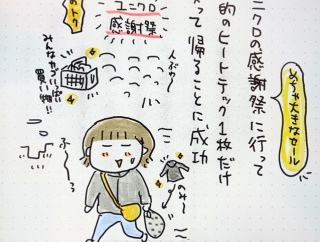 めちゃ大きなセール
ニクロの感謝祭に行って
的のヒートテック1枚だけ
って帰ることに成功
ユニクロ
感謝祭
のトク
人ぶわ〜
みんなカゴいっぱい
買い物!!
ふ〜
のみ〜